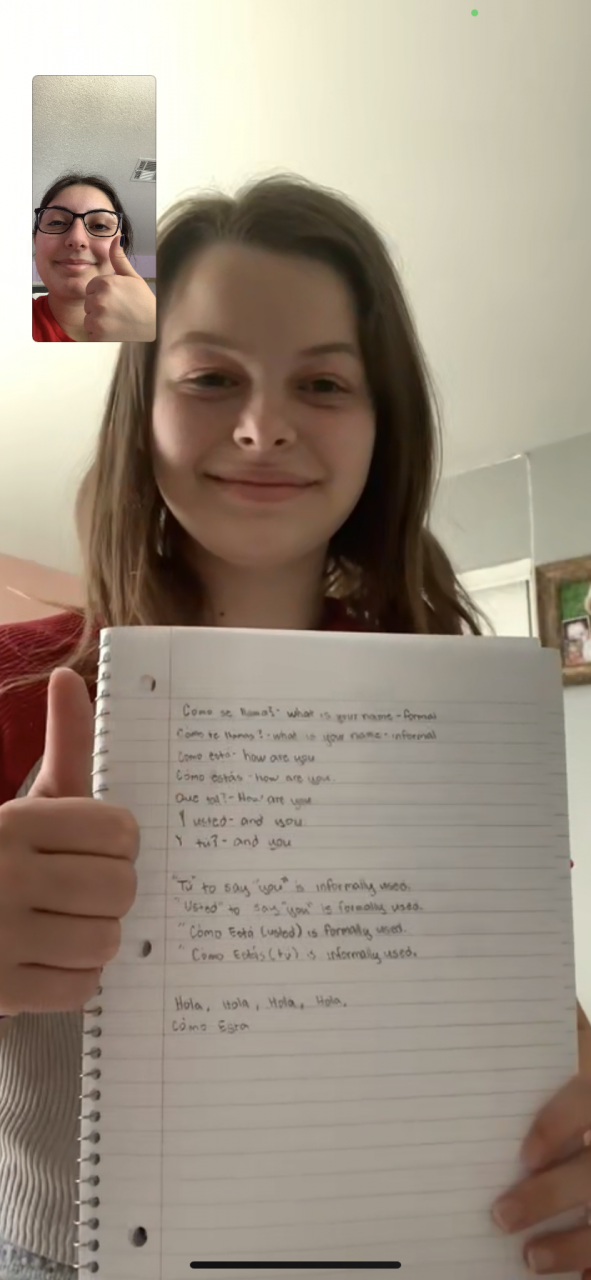 Como se llama?- what is your name - formal
Como te llamas? - what is your name - informal
Como está - how are you
Cómo estás - How are you.
Que tal? - How are you
Y usted - and you
Y tú? - and you
"Tu" to say "you" is informally used.
"Usted" to say "you" is formally used.
"Cómo Está (usted) is formally used.
"Como Estás (tú) is informally used.
Hola, Hola, Hola, Hola,
Cómo Esta